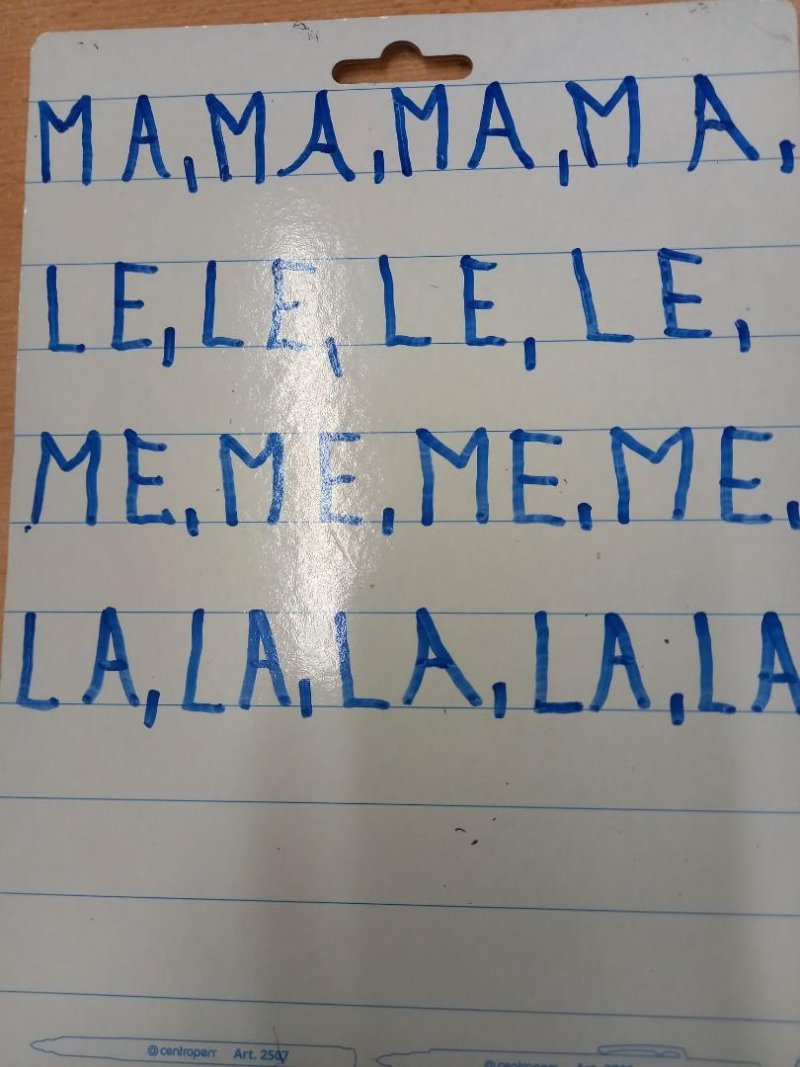 MA, MA, MA, MA,
LE, LE, LE, LE,
ME, ME, ME, ME,
LA, LA, LA, LA, LA
centropen Art. 2507
centropen Art.